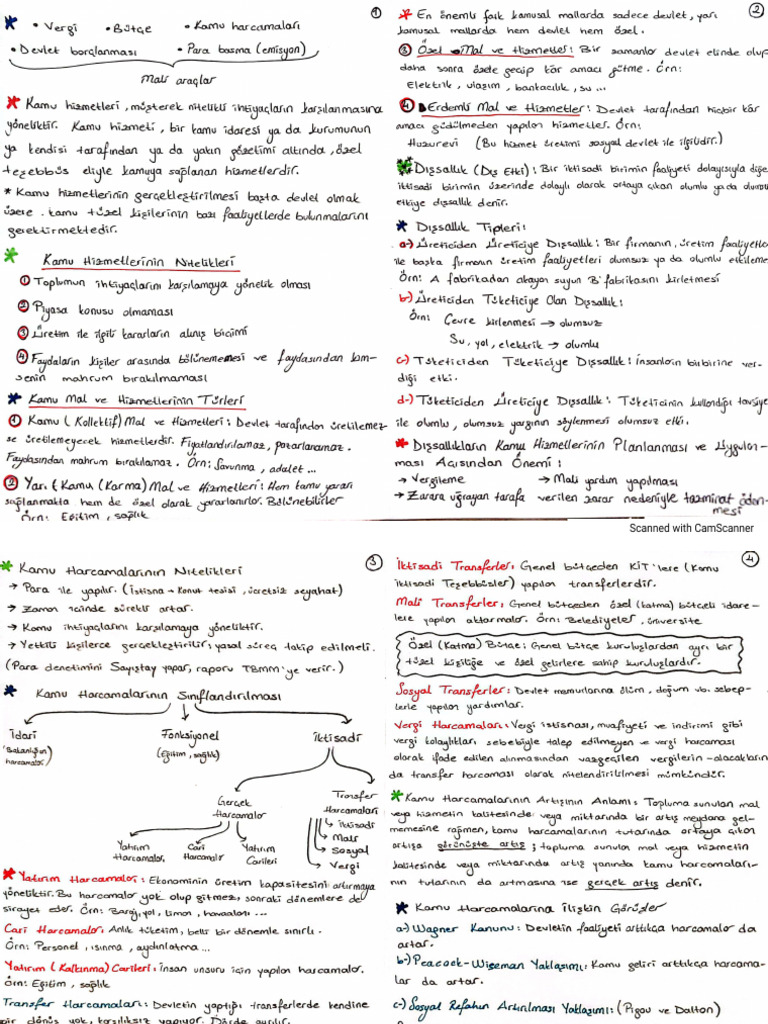 1
* • Vergi • Bütçe • Kamu harcamaları
• Devlet borçlanması • Para basma (emisyon)
Mali araçlar
* Kamu hizmetleri, müşterek nitelikli ihtiyaçların karşılanmasına
yöneliktir. Kamu hizmeti, bir kamu idaresi ya da kurumunun
ya kendisi tarafından ya da yakın gözetimi altında, özel
teşebbüs eliyle kamuya sağlanan hizmetlerdir.
* Kamu hizmetlerinin gerçekleştirilmesi başta devlet olmak
üzere kamu tüzel kişilerinin bazı faaliyetlerde bulunmalarını
gerektirmektedir.
* Kamu Hizmetlerinin Nitelikleri
1 Toplumun ihtiyaçlarını karşılamaya yönelik olması
2 Piyasa konusu olmaması
3 Üretim ile ilgili kararların alınış biçimi
4 Faydaların kişiler arasında bölünememesi ve faydasından kim-
senin mahrum bırakılmaması
* Kamu Mal ve Hizmetlerinin Türleri
1 Kamu (Kollektif) Mal ve Hizmetleri: Devlet tarafından üretilemez-
se üretilemeyecek hizmetlerdir. Fiyatlandırılamaz, pazarlanamaz.
Faydasından mahrum bırakılamaz. Örn: Savunma, adalet ...
2 Yarı (Kamu (Karma) Mal ve Hizmetleri: Hem kamu yararı
sağlanmakta hem de özel olarak yararlanılır. Bölünebilirler
Örn: Eğitim, sağlık
2
* En önemli fark kamusal mallarda sadece devlet, yarı
kamusal mallarda hem devlet hem özel.
3 Özel Mal ve Hizmetler: Bir zamanlar devlet elinde olup
daha sonra özele geçip kâr amacı gütme. Örn:
Elektrik, ulaşım, bankacılık, su ...
4 Erdemli Mal ve Hizmetler: Devlet tarafından hiçbir kâr
amacı güdülmeden yapılan hizmetler. Örn:
Huzurevi (Bu hizmet üretimi sosyal devlet ile ilgilidir.)
* Dışsallık (Dış Etki): Bir iktisadi birimin faaliyeti dolayısıyla diğer
iktisadi birimin üzerinde dolaylı olarak ortaya çıkan olumlu ya da olumsuz
etkiye dışsallık denir.
* Dışsallık Tipleri:
a-) Üreticiden Üreticiye Dışsallık: Bir firmanın, üretim faaliyetleri
ile başka firmanın üretim faaliyetleri olumsuz ya da olumlu etkileme
Örn: A fabrikadan akayan suyun B fabrikasını kirletmesi
b-) Üreticiden Tüketiciye Olan Dışsallık:
Örn: Çevre kirlenmesi → olumsuz
Su, yol, elektrik → olumlu
c-) Tüketiciden Tüketiciye Dışsallık: İnsanların birbirine ver-
diği etki.
d-) Tüketiciden Üreticiye Dışsallık: Tüketicinin kullandığı tavsiye
ile olumlu, olumsuz yargının söylenmesi olumsuz etki.
* Dışsallıkların Kamu Hizmetlerinin Planlanması ve Uygulan-
ması Açısından Önemi:
→ Vergileme → Mali yardım yapılması
→ Zarara uğrayan tarafa verilen zarar nedeniyle tazminat öden-
mesi
Scanned with CamScanner
3
* Kamu Harcamalarının Nitelikleri
→ Para ile yapılır. (İstisna → Konut tesisi, ücretsiz seyahat)
→ Zaman içinde sürekli artar.
→ Kamu ihtiyaçlarını karşılamaya yöneliktir.
→ Yetkili kişilerce gerçekleştirilir; yasal süreç takip edilmeli.
(Para denetimini Sayıştay yapar, raporu TBMM'ye verir.)
* Kamu Harcamalarının Sınıflandırılması
İdari Fonksiyonel İktisadi
(Bakanlığın harcamaları) (Eğitim, sağlık)
Gerçek Harcamalar
Transfer Harcamaları
→ İktisadi
→ Mali
→ Sosyal
→ Vergi
Yatırım Harcamaları Cari Harcamalar Yatırım Carileri
* Yatırım Harcamaları: Ekonominin üretim kapasitesini artırmaya
yöneliktir. Bu harcamalar yok olup gitmez, sonraki dönemlere de
sirayet eder. Örn: Baraj, yol, liman, havaalanı ...
Cari Harcamalar: Anlık tüketim, belli bir dönemle sınırlı.
Örn: Personel, ısınma, aydınlatma ...
Yatırım (Kalkınma) Carileri: İnsan unsuru için yapılan harcamalar.
Örn: Eğitim, sağlık
Transfer Harcamaları: Devletin yaptığı transferlerde kendine
bir dönüş yok, karşılıksız yapıyor. Dörde ayrılır.
4
İktisadi Transferler: Genel bütçeden KİT'lere (Kamu
iktisadi Teşebbüsler) yapılan transferlerdir.
Mali Transferler: Genel bütçeden özel (katma) bütçeli idare-
lere yapılan aktarmalar. Örn: Belediyeler, üniversite
Özel (Katma) Bütçe: Genel bütçe kuruluşlardan ayrı bir
tüzel kişiliğe ve özel gelirlere sahip kuruluşlardır.
Sosyal Transferler: Devlet memurlarına ölüm, doğum vb. sebep-
lerle yapılan yardımlar.
Vergi Harcamaları: Vergi istisnası, muafiyeti ve indirimi gibi
vergi kolaylıkları, sebebiyle talep edilmeyen ve vergi harcaması
olarak ifade edilen alınmasından vazgeçilen vergilerin -alacakların
da transfer harcaması olarak nitelendirilmesi mümkündür.
* Kamu Harcamalarının Artışının Anlamı: Topluma sunulan mal
veya hizmetin kalitesinde veya miktarında bir artış meydana gel-
memesine rağmen, kamu harcamalarının tutarında ortaya çıkan
artışa görünüşte artış; topluma sunulan mal veya hizmetin
kalitesinde veya miktarında artış yanında kamu harcamaları-
nın tutarının da artmasına ise gerçek artış denir.
* Kamu Harcamalarına İlişkin Görüşler
a-) Wagner Kanunu: Devletin faaliyeti arttıkça harcamalar da
artar.
b-) Peacock-Wiseman Yaklaşımı: Kamu geliri arttıkça harcama-
lar da artar.
c-) Sosyal Refahın Artırılması Yaklaşımı: (Pigou ve Dalton)